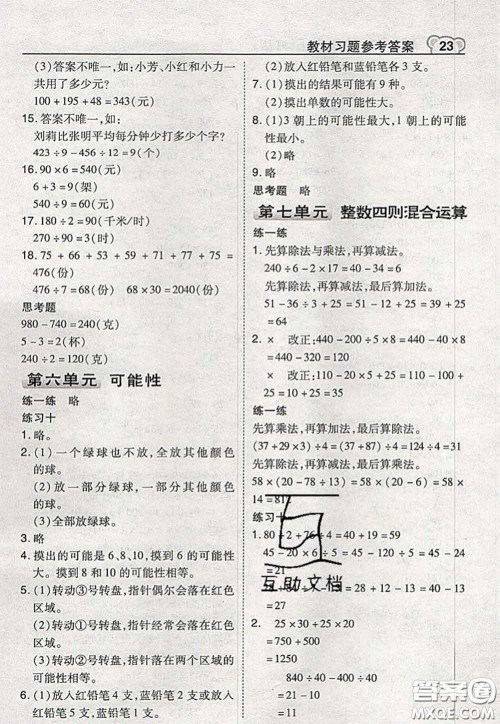 教材习题参考答案 23
(3)答案不唯一,如:小芳、小红和小力一
共用了多少元?
100+195+48=343(元)
15.答案不唯一,如:
刘莉比张明平均每分钟少打多少个字?
423÷9-456÷12=9(个)
16.90×6=540(元)
54÷6=9(架)
540÷9=60(元)
17.180÷2=90(千米/时)
270÷90=3(时)
18.75+66+53+59+71+65+87=
476(份)
476÷7=68(份) 68×30=2040(份)
思考题
980-740=240(克)
5-3=2(杯)
240÷2=120(克)
第六单元 可能性
练一练 略
练习十
1.略。
2.(1)一个绿球也不放,全放其他颜色
的球。
(2)放一部分绿球,一部分其他颜色
的球。
(3)全部放绿球。
3.略
4.摸出的可能是6、8、10,摸到6的可能性
大。摸到8和10的可能性相等。
5.(1)转动③号转盘,指针偶尔会落在红色
区域。
(2)转动①号转盘,指针经常会落在红
色区域。
(3)转动②号转盘,指针落在两种颜色
区域的可能性相等。
6.(1)放入红铅笔4支,蓝铅笔2支或放入
红铅笔5支,蓝铅笔1支。
(2)放入红铅笔和蓝铅笔各3支。
7.(1)摸出的结果可能有9种。
(2)摸出单数的可能性大。
8.(1)3朝上的可能性大,1朝上的可能
性最小。
(2)略
9.略
思考题 略
第七单元 整数四则混合运算
练一练
1.先算除法与乘法,再算减法。
240÷6-2×17=40-34=6
先算除法,再算减法,最后算加法。
51-36÷3+25=51-12+25=39+25
=64
2.× 改正:440-200÷5×8=440-40×8
=440-320=120
× 改正:280+120÷4×5=280+30×5
=280+150=430
练一练
先算乘法,再算加法,最后算除法。
(37+29×2)÷5=(37+58)÷5=95÷5=19
先算除法,再算减法,最后算乘法。
58×(20-78÷13)=58×(20-6)=58×
14=812
练习十
=21
=27
2.25×30+25×20
=750+500
=1250
840÷40-400÷40
=21-10
=11
互助文档
答案圈
MXQE.COM